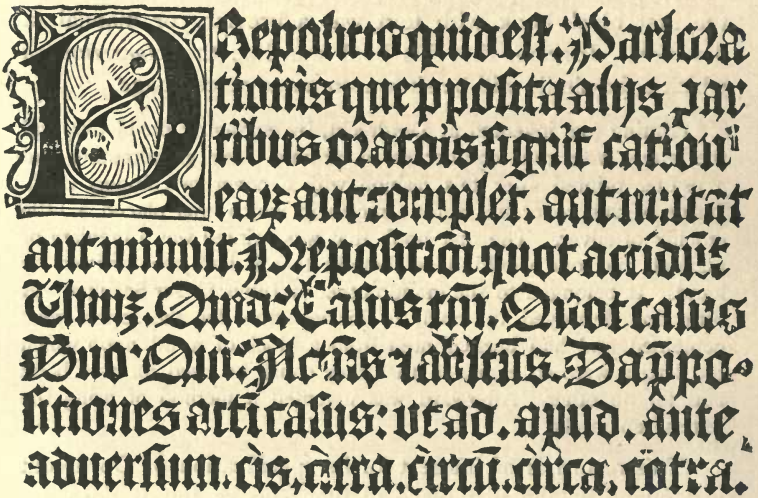 PRepositio quid est. Pars ora
tionis que p̱posita alijs par
tibus oratōis significationē
eaꝝ aut complet. aut mutat
aut minuit. Prepositiōi quot accidūt
Unuꝫ. Quid? Casus tm̄. Quot casus
Duo Qui? Actūs ⁊ ablatūs. Da p̄po-
sitiones acti casus: vt ad. apud. ante
aduersum. cis. citra. circū. circa. cōtra.